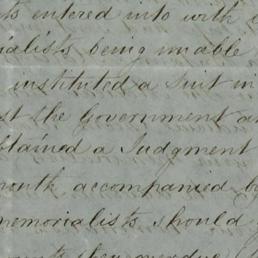 ts entered into with
ialists being unable
instituted a Suit in
st the Government a
btained a Judgment
onth accompanied b
memorialists should